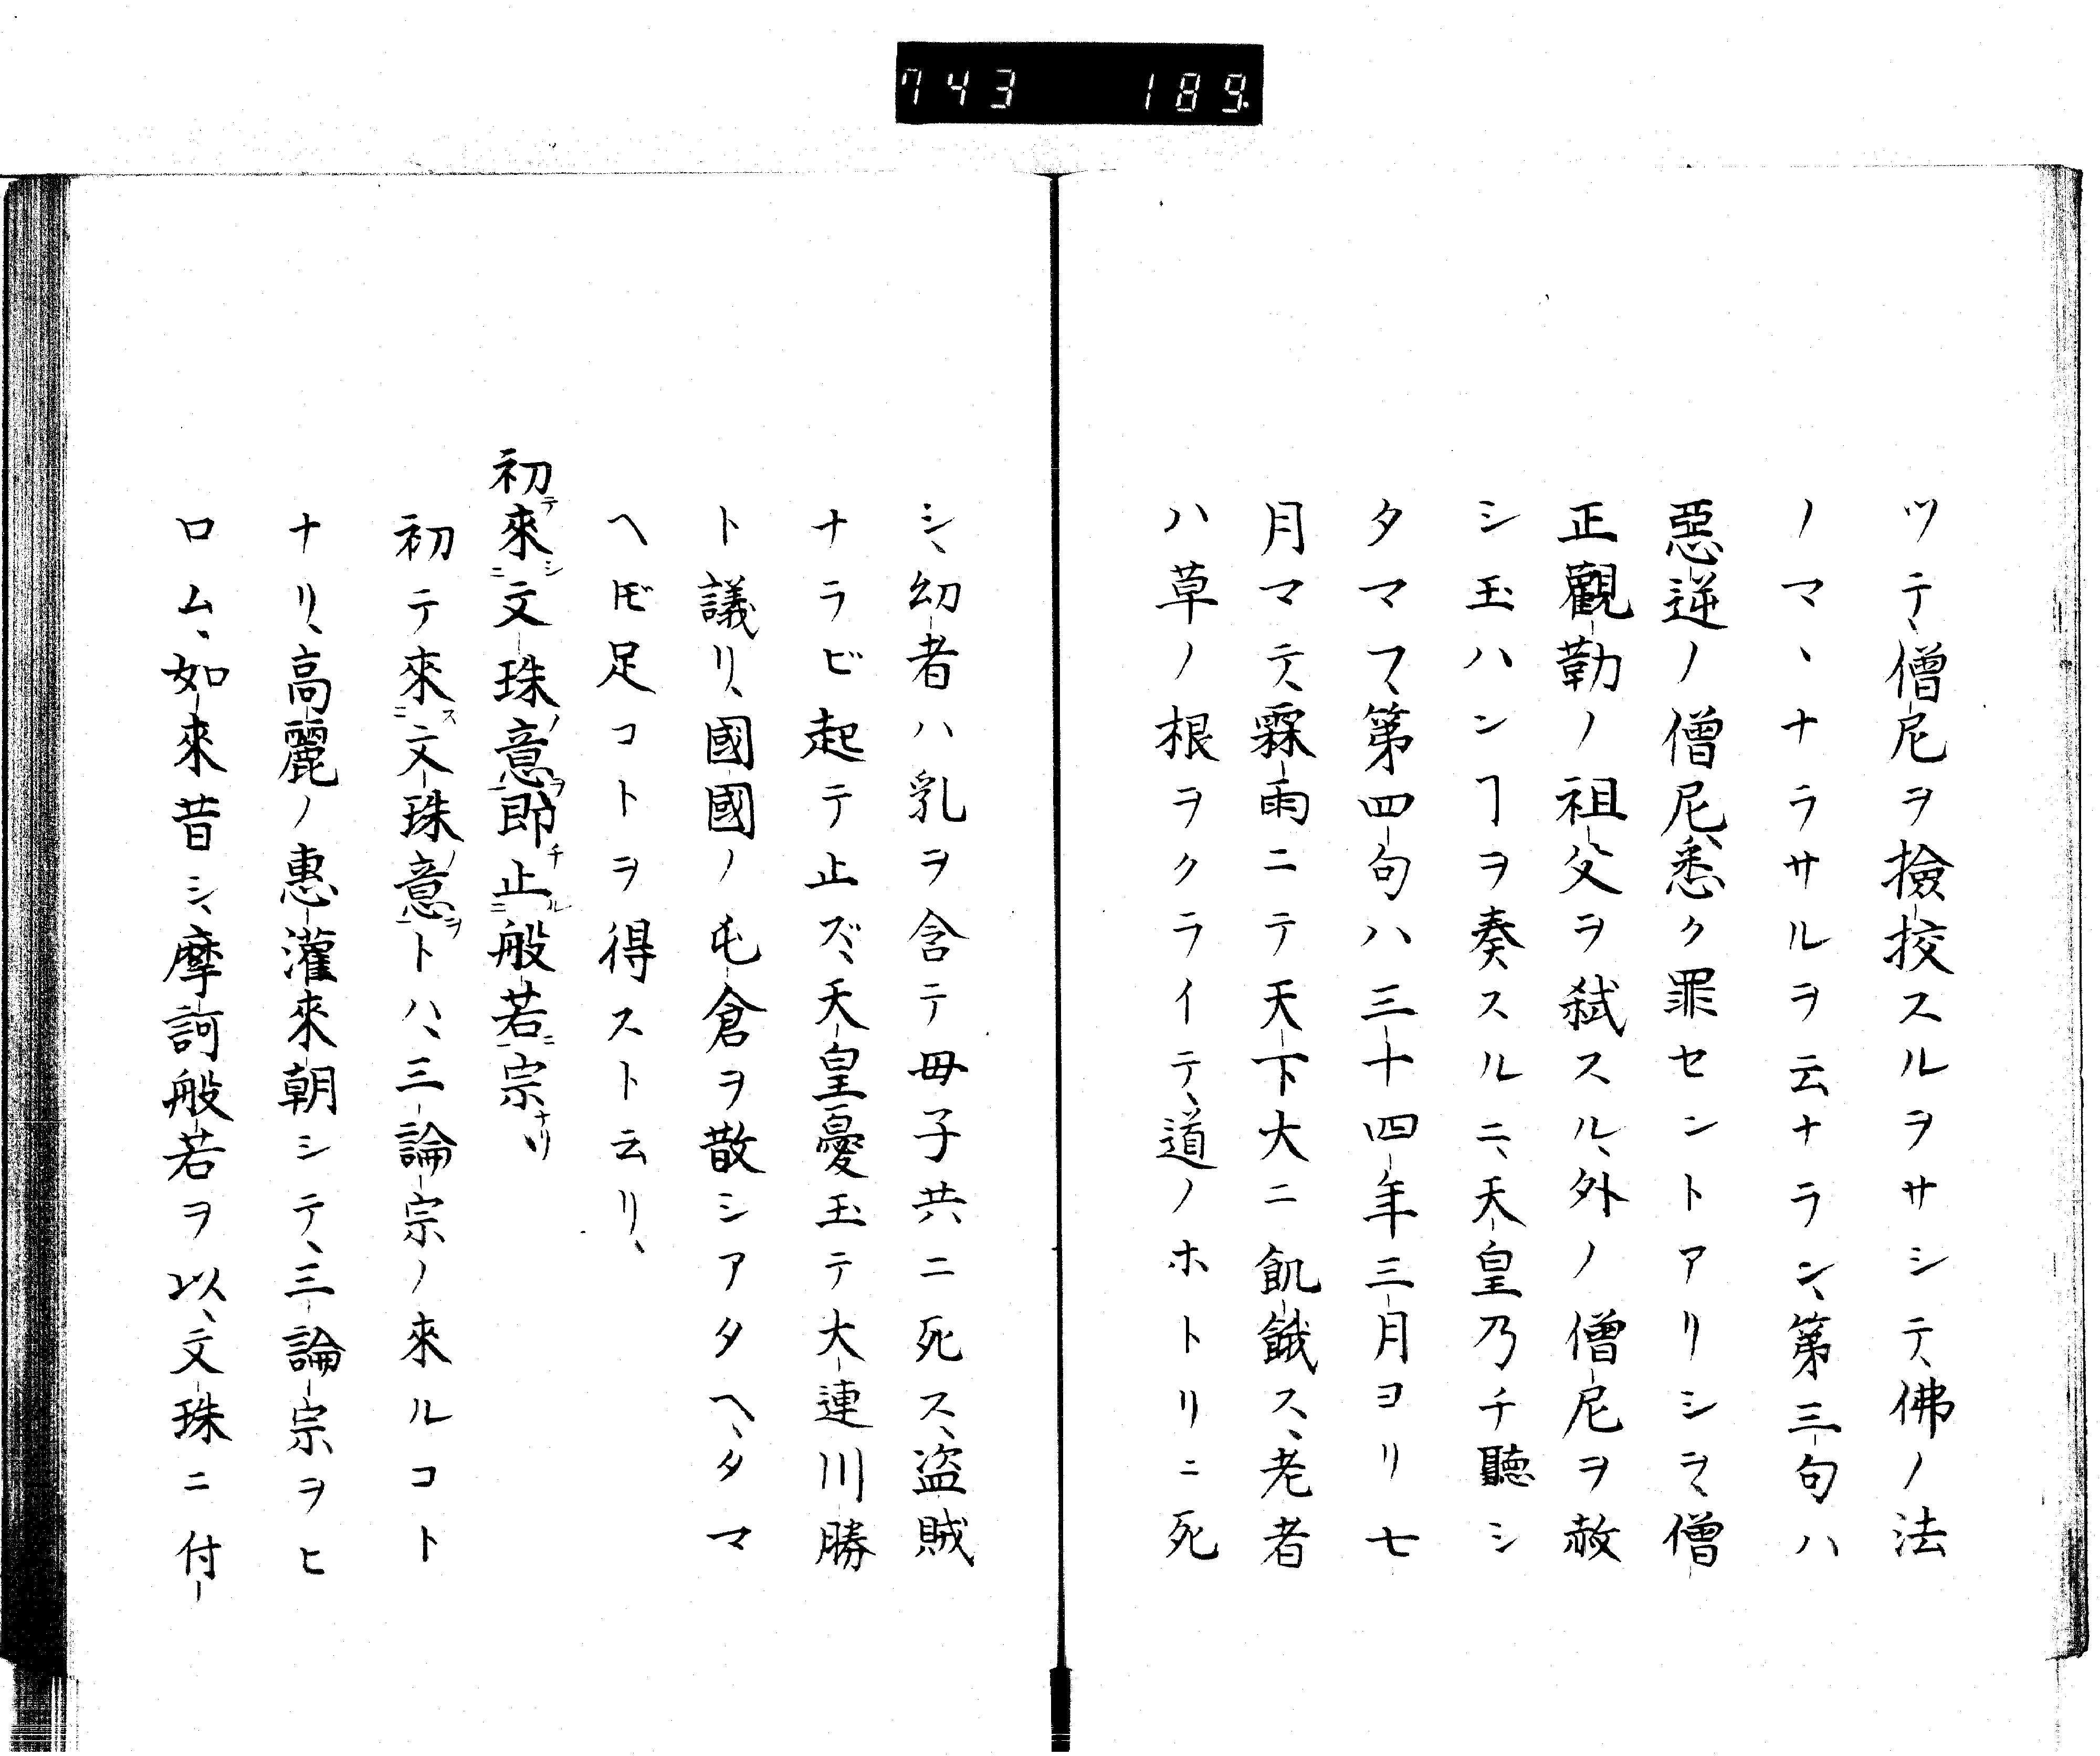 743 189.
ツテ、僧尼ヲ撿挍スルヲサシテ、佛ノ法
ノマヽナラサルヲ云ナラン、第三句ハ
惡逆ノ僧尼、悉ク罪セントアリシヲ、僧
正觀勒ノ祖父ヲ弑スル、外ノ僧尼ヲ赦
シ玉ハンヿヲ奏スルニ、天皇乃チ聽シ
タマフ、第四句ハ三十四年三月ヨリ七
月マテ、霖雨ニテ天下大ニ飢餓ス、老者
ハ草ノ根ヲクライテ、道ノホトリニ死
シ、幼者ハ乳ヲ含テ母子共ニ死ス、盜賊
ナラビ起テ止ズ、天皇憂玉テ大連川勝
ト議リ、國國ノ屯倉ヲ散シアタヘ、タマ
ヘㇳ゙モ足コトヲ得スト云リ、
初テ來シ二文珠ノ意ヲ一即チ止ル二般若ニ一宗ナリ
初テ來ス二文珠ノ意ヲ一トハ、三論宗ノ來ルコト
ナリ、高麗ノ惠灌來朝シテ、三論宗ヲヒ
ロム、如來昔シ、摩訶般若ヲ以、文珠ニ付